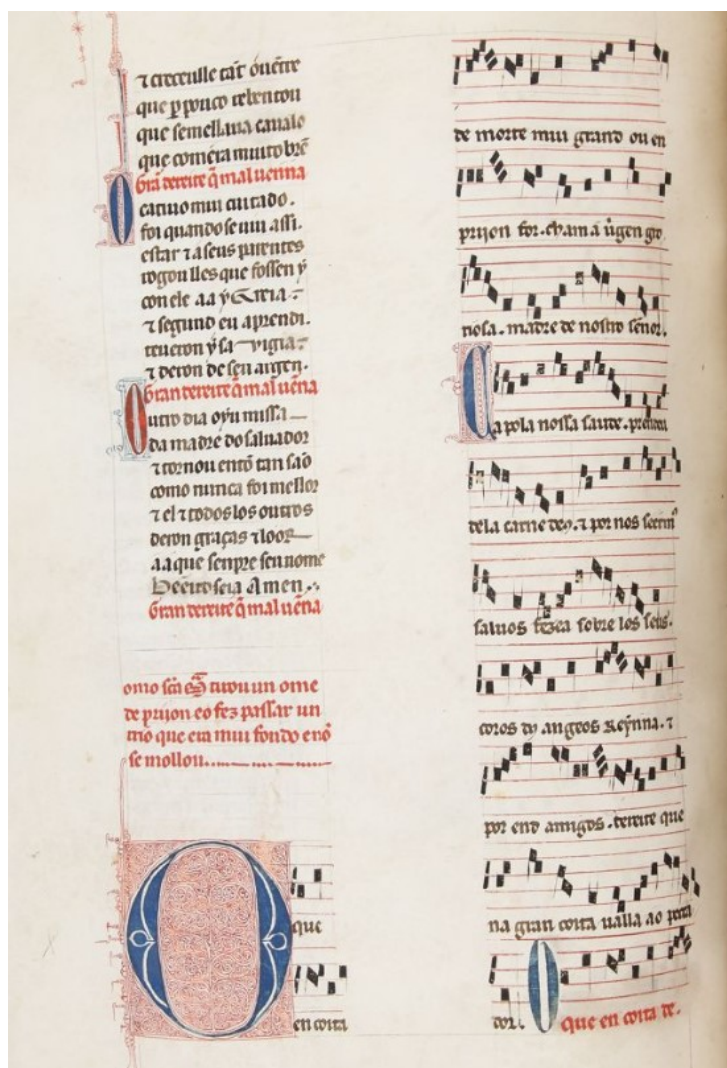 ⁊ creceulle tãt o uẽtre
que ꝑ pouco rebentou
que semellaua caualo
que comera muito brẽ
Gran dereite q̃ mal uenna
Catiuo mui cuitado.
foi quando se uiu assi.
estar ⁊ a seus parentes
rogou lles que fossen ẏ
con ele aa ẏgreia.
⁊ segund eu aprendi.
teueron ẏ sa vigia.
⁊ deron de seu argen.
Gran dereite q̃ mal uẽna
Outro dia oyu missa
da madre do saluador
⁊ tornou entõ tan são
como nunca foi mellor
⁊ el ⁊ todos los outros
deron graças ⁊ loor
aa que sempre seu nome
Bẽeito seia Amen.
Gran dereite q̃ mal uẽna
omo sc̃a Mª tirou un ome
de prijon e o fez passar un
rio que era mui fondo e nõ
se mollou
O que
en coita
de morte mui grand ou en
prijon for. cham a uirgen gro
riosa. madre de nostro sẽnor.
Ca pola nossa saude. prendeu
dela carne
⁊ por nos seermos
saluos fezea sobre los seus.
coros dos angeos Reẏnna. ⁊
por end amigos. dereite que
na gran coita ualla ao pecca
dor. O que en coita de.